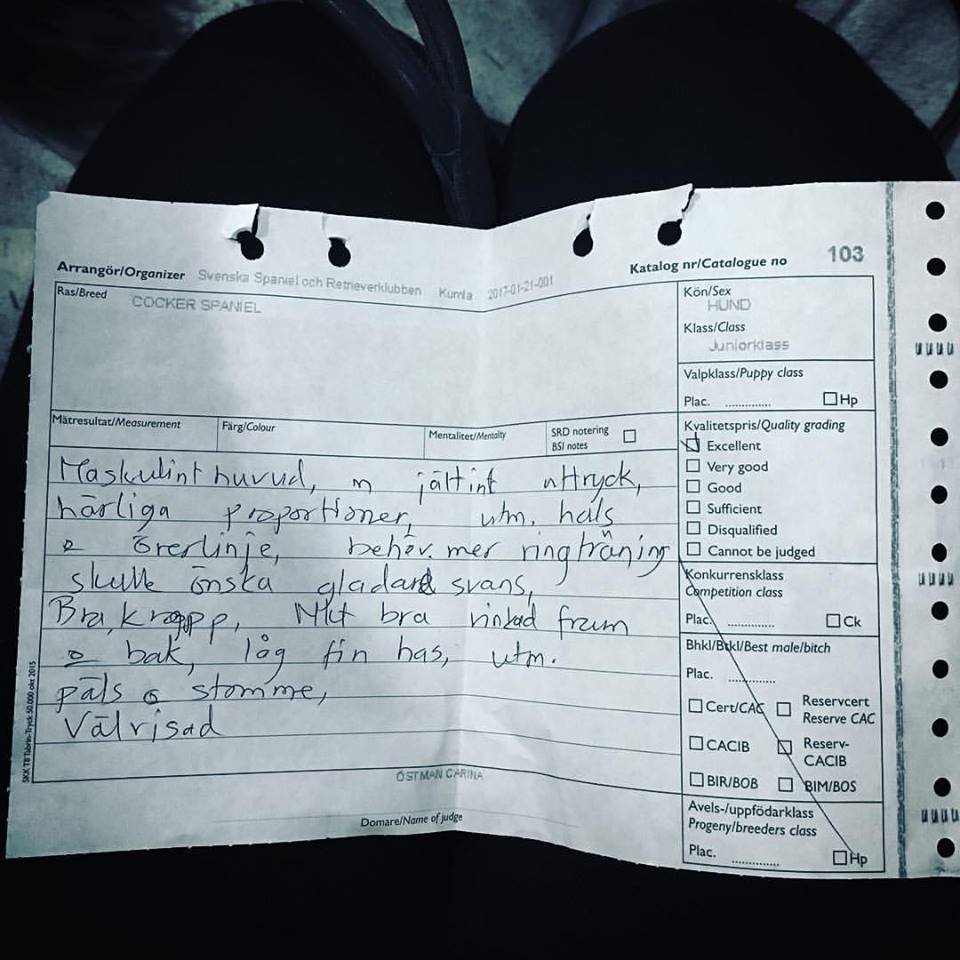 Arrangör/Organizer Svenska Spaniel och Retrieverklubben Kumla 2017-01-21-001 Katalog nr/Catalogue no 103
Ras/Breed COCKER SPANIEL
Kön/Sex
HUND
Klass/Class
Juniorklass
Valpklass/Puppy class
Plac. .............. Hp
Mätresultat/Measurement Färg/Colour Mentalitet/Mentality SRD notering
BSI notes
Kvalitetspris/Quality grading
Excellent
Very good
Good
Sufficient
Disqualified
Cannot be judged
Maskulint huvud, m jättfint uttryck,
härliga proportioner, utm. hals
o överlinje, behöv. mer ringträning
skulle önska gladare svans,
Bra kropp, Mkt bra vinklad fram
o bak, låg fin has, utm.
päls o stomme,
Välvisad
Konkurrensklass
Competition class
Plac. .............. Ck
Bhkl/Btkl/Best male/bitch
Plac. ..............
Cert/CAC Reservcert
Reserve CAC
CACIB Reserv-
CACIB
BIR/BOB BIM/BOS
Avels-/uppfödarklass
Progeny/breeders class
Plac. .............. Hp
ÖSTMAN CARINA
Domare/Name of judge
50.000 okt 2015